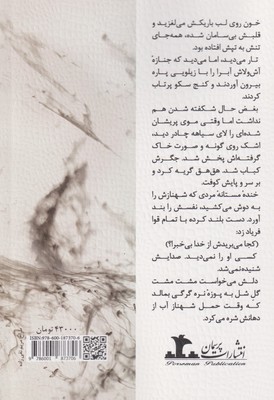 خون روی لب باریکش می‌لغزید و
قلبش بی‌سامان شده، همه‌جای
تنش به تپش افتاده بود.
تار می‌دید، اما می‌دید که جنازهٔ
آش‌ولاش آبرا را با زیلویی پاره
بیرون آوردند و کنج سکو پرتاب
کردند.
بغض حال شکفته شدن هم
نداشت اما وقتی موی پریشان
دخمه‌ای را لای سیاهه چادر دید،
اشک روی گونه و صورت خاک
گرفته‌اش پخش شد. جگرش
کباب شد. هق‌هق گریه کرد و
بر سر و پایش کوفت.
خندهٔ مستانهٔ مردی که شهنازش را
به دوش می‌کشید، نفسش را بند
آورد. دست بلند کرده با تمام قوا
فریاد زد:
(کجا می‌بریدش از خدا بی‌خبرا؟)
کسی او را نمی‌دید. صدایش
شنیده نمی‌شد.
دلش می‌خواست مشت مشت
گل شل به پوزهٔ نره گرگی بمالد
که وقت حمل شهناز آب از
دهانش شره می‌کرد.
انتشارات پریمان
Pereman Publication
۴۳۰۰۰ تومان